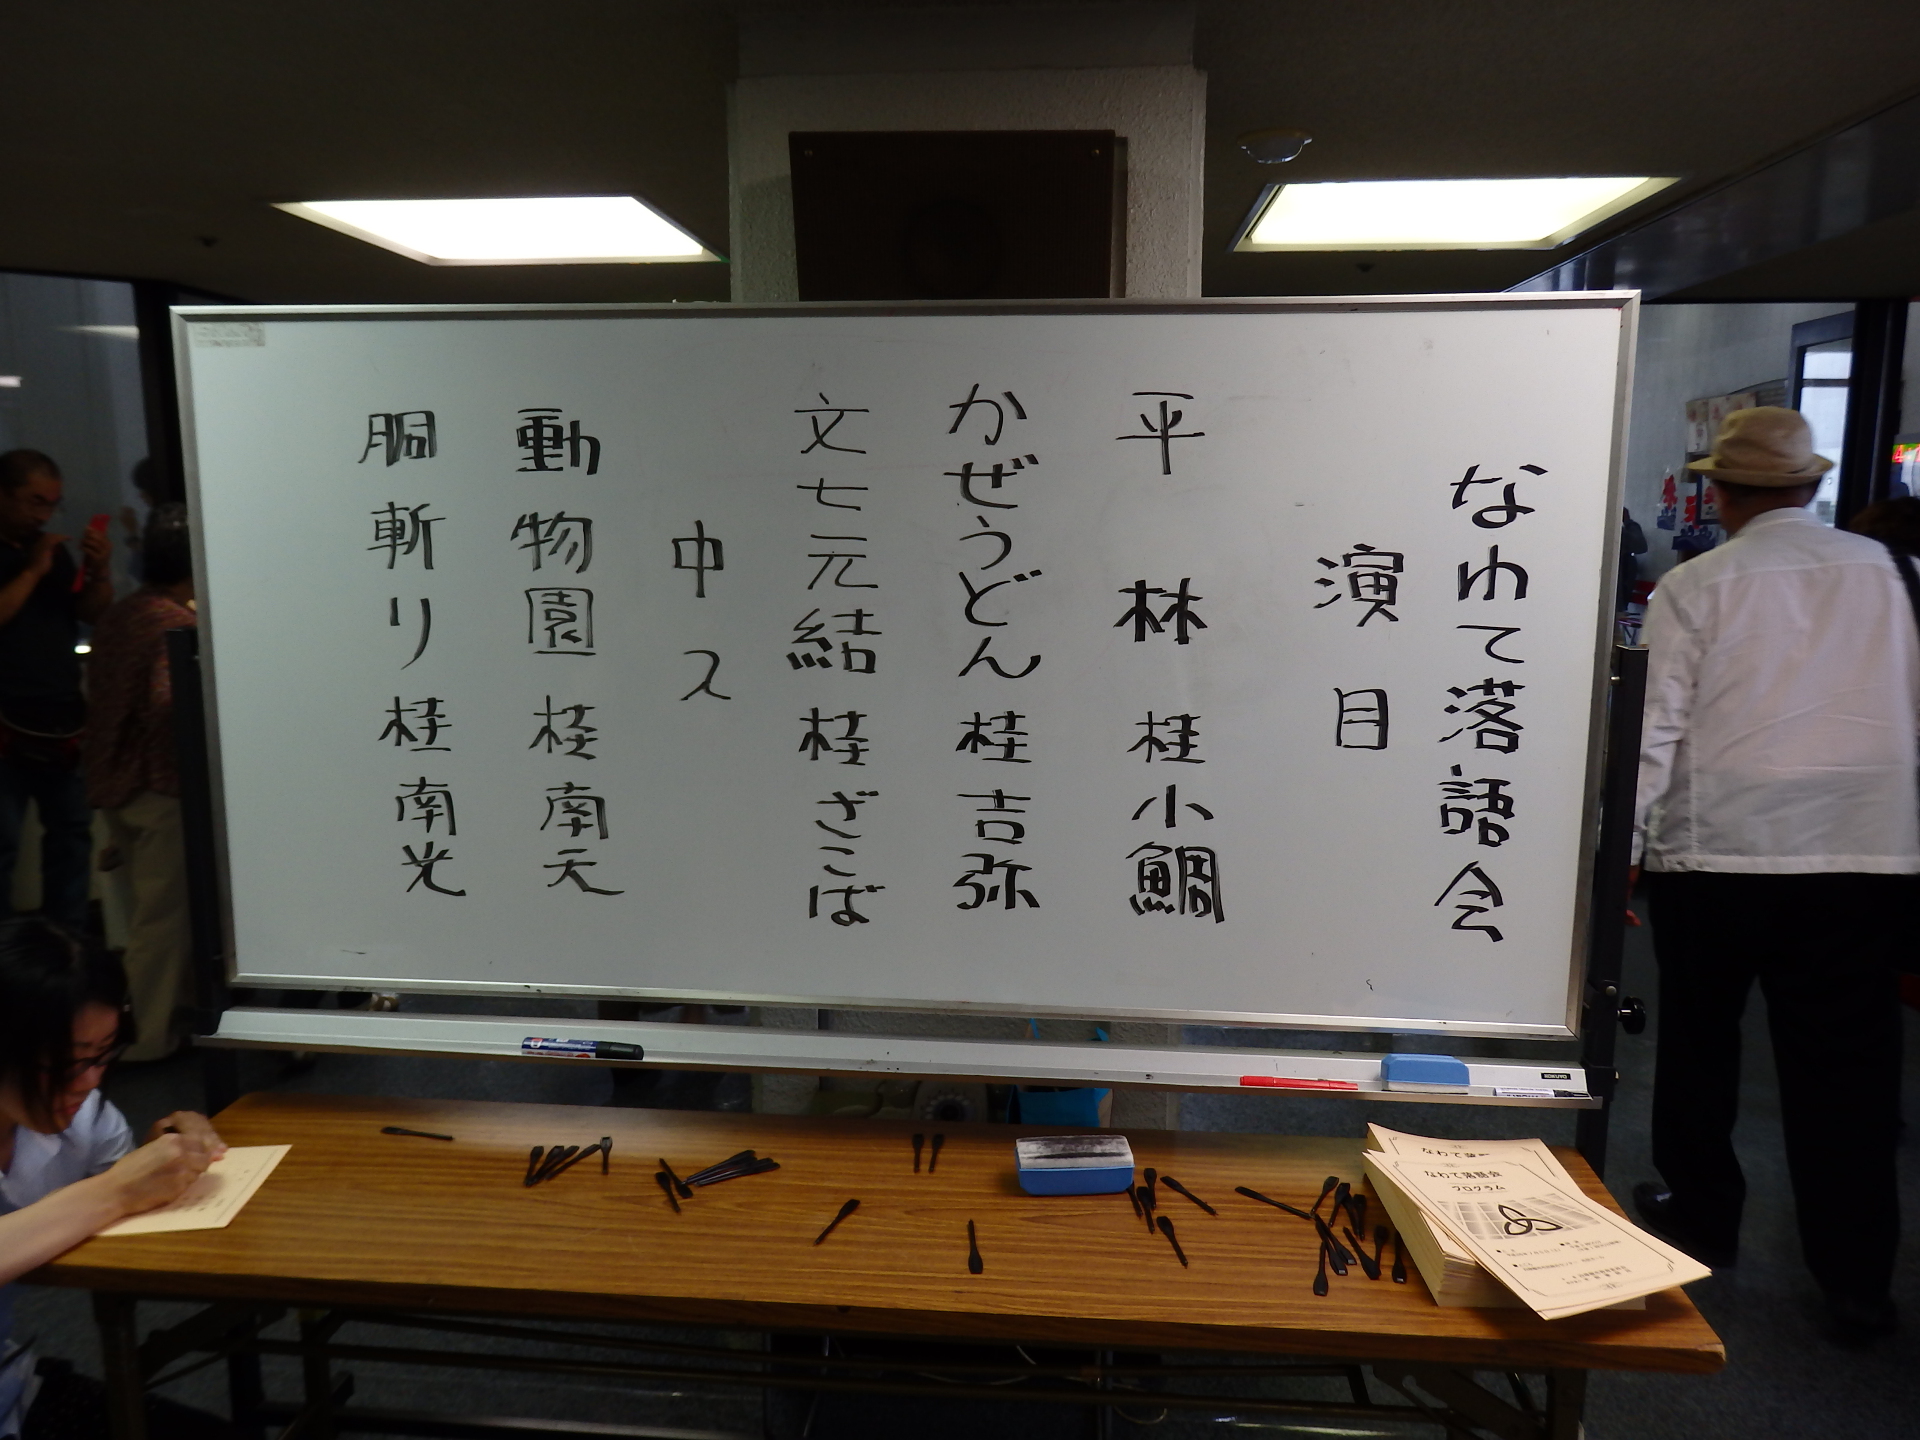 なわて落語会
演目
平林 桂小鯛
かぜうどん 桂吉弥
文七元結 桂ざこば
中入
動物園 桂南天
胴斬り 桂南光
KOKUYO
なわて落語会
プログラム